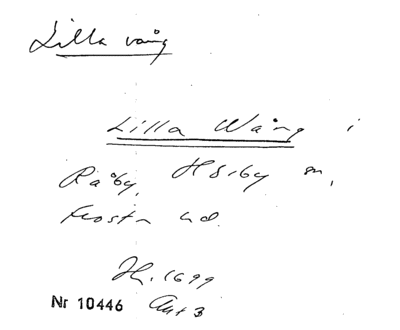 Lilla vång
Lilla Wång i
Råby, Hörby sn,
Frosta hd.
Jb. 1699
Nr 10446 Ant 3